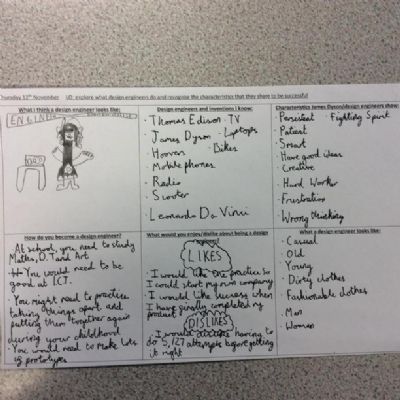 Thursday 12th November LO: explore what design engineers do and recognise the characteristics that they share to be successful
What I think a design engineer looks like:
ENGINE
Design engineers and inventions I know:
· Thomas Edison · TV
· James Dyson · Laptops
· Hoover · Bikes
· Mobile phones
· Radio
· Scooter
· Leonardo Da Vinci
Characteristics James Dyson/design engineers show:
· Persistent · Fighting Spirit
· Patient
· Smart
· Have good ideas
· Creative
· Hard Worker
· Frustration
· Wrong thinking
How do you become a design engineer?
· At school, you need to study
Maths, D.T and Art
· You would need to be
good at ICT.
· You might need to practice
taking things apart and
putting them together again
during your childhood
· You would need to make lots
of prototypes
What would you enjoy/dislike about being a design
engineer?
LIKES
· I would like the practice so
I could start my own company
· I would like success when
I have finally completed my
product
DISLIKES
· I would dislike having to
do 5,127 attempts before getting
it right
What a design engineer looks like:
· Casual
· Old
· Young
· Dirty clothes
· Fashionable clothes
· Men
· Women